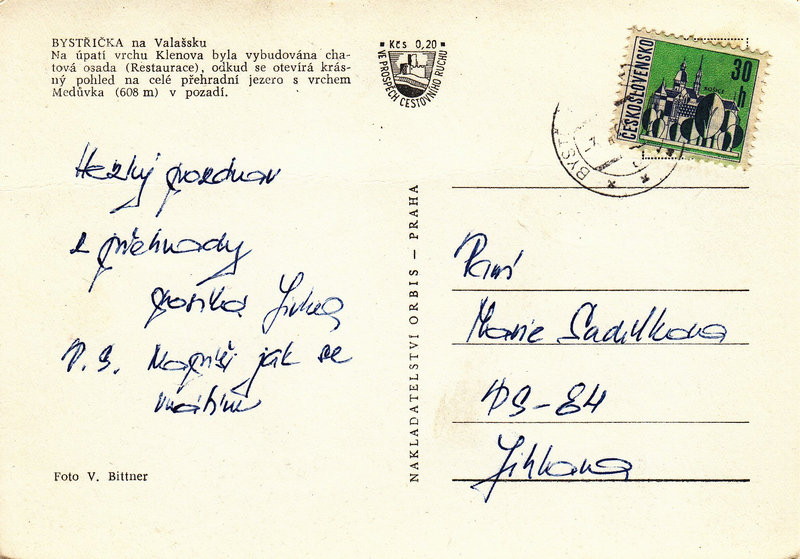 BYSTŘIČKA na Valašsku
Na úpatí vrchu Klenova byla vybudována cha-
tová osada (Restaurace), odkud se otevírá krás-
ný pohled na celé přehradní jezero s vrchem
Medůvka (608 m) v pozadí.
Kčs 0,20
VE PROSPĚCH CESTOVNÍHO RUCHU
ČESKOSLOVENSKO
30 h
KOŠICE
BYST
Hezký pozdrav
z přehrady
posílá Jirka
P.S. Napiši jak se
vrátím
NAKLADATELSTVÍ ORBIS – PRAHA
Paní
Marie Sadílkova
PS-84
Jihlava
Foto V. Bittner